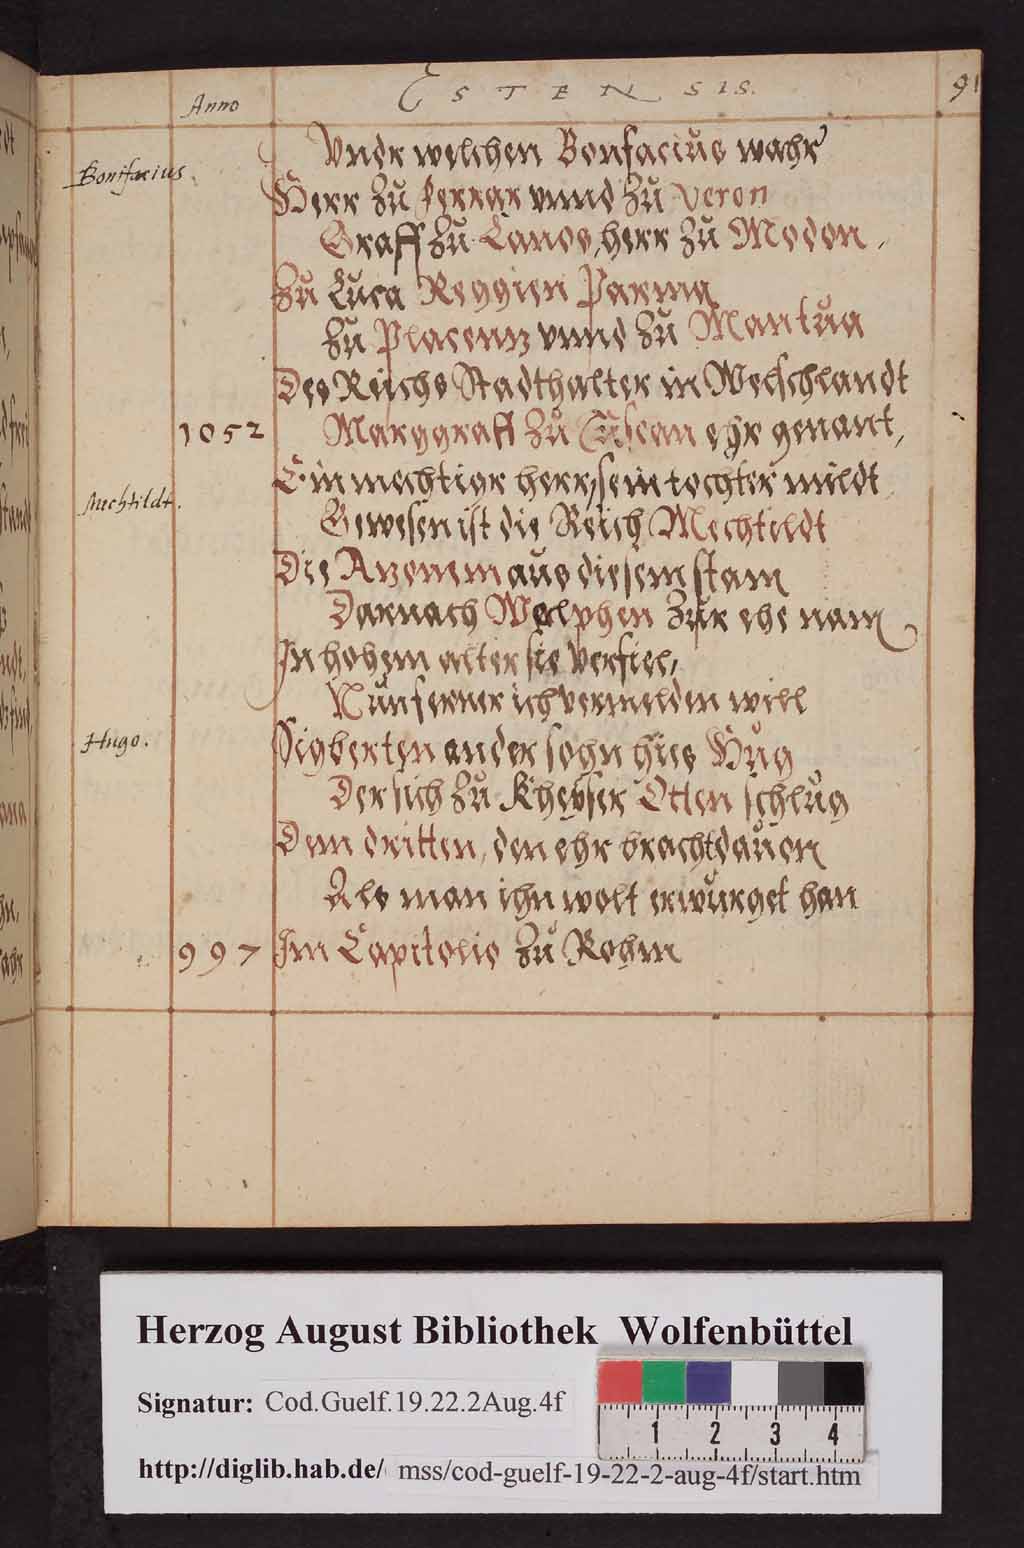 Anno ESTENSIS. 91
Bonifacius. Vndr welchen Bonfacius wahr
Herr zu ferrar vnnd zu Veron
Graff zu Canos, herr zu Moden,
Zu Luca Reggien Parma
zu Placentz vnnd zu Mantua
Des Reichs Stadthalter in Welschlandt
1052 Marggraff zu Tuscan ehr genant,
Ein mechtigr herr, sein tochter mildt
Mechtildt. Gewesen ist die Reich Mechtildt
Die Azonem aus diesem stam
Darnach Welphen zur ehe nam
In hohem alter sie verfiel,
Nun ferner ich vermelden will
Hugo. Sigberten ander sohn hies Hug
Der sich zu Kheyser Otten schlug
Dem dritten, den ehr bracht dauon
Als man ihn wolt erwurget han
997 Im Capitolio zu Rohm
Herzog August Bibliothek Wolfenbüttel
Signatur: Cod.Guelf.19.22.2Aug.4f
1 2 3 4
http://diglib.hab.de/ mss/cod-guelf-19-22-2-aug-4f/start.htm